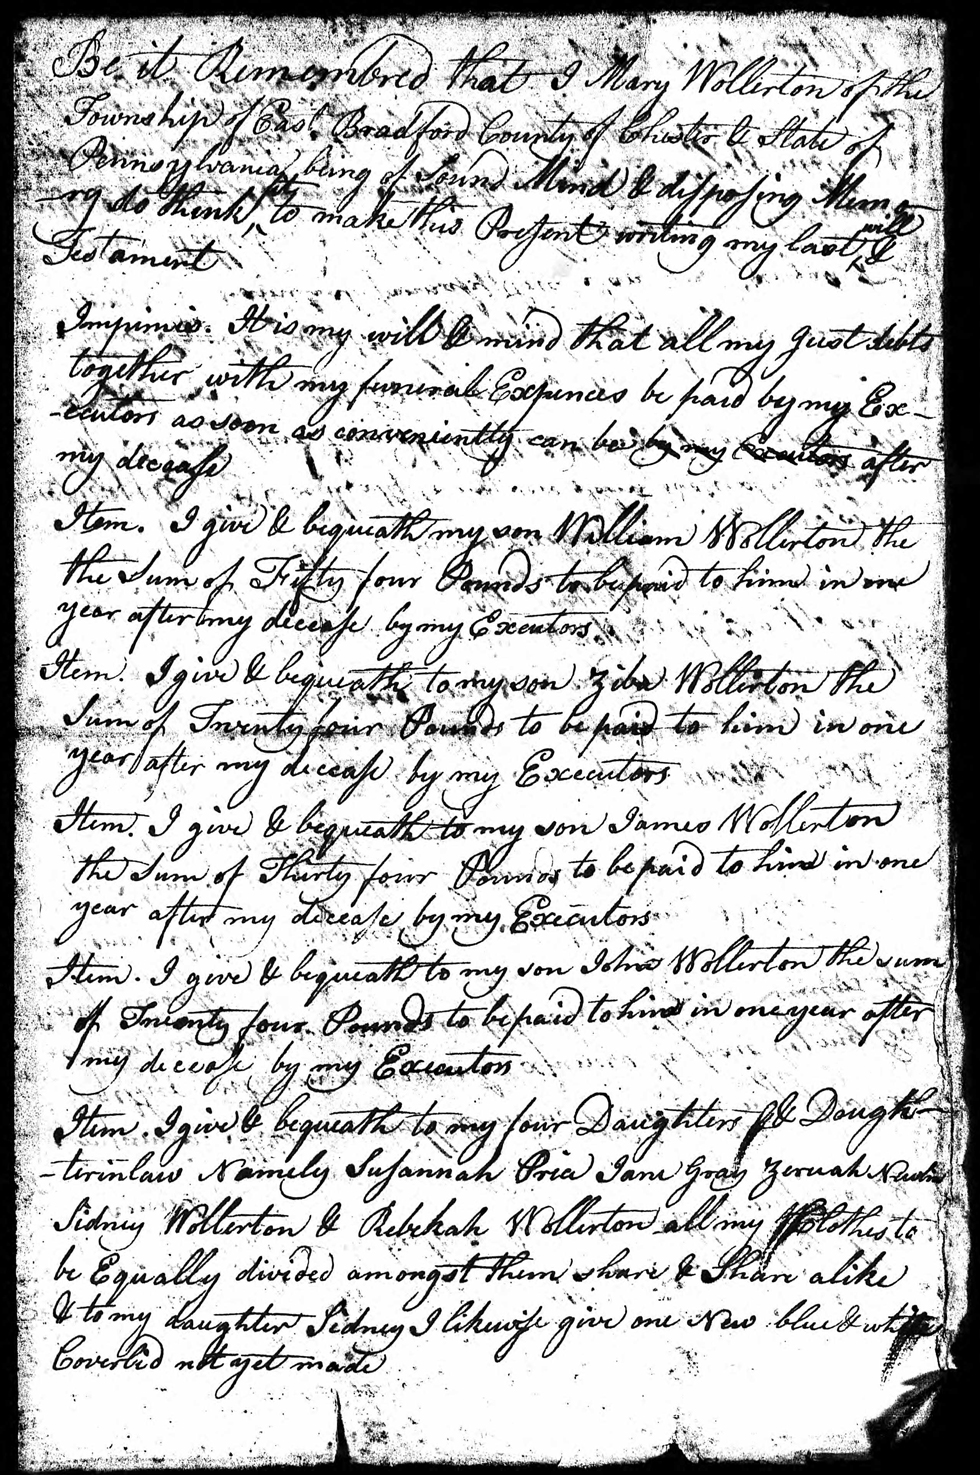 Be it Remembred that I Mary Wollerton of the
Township of East Bradford County of Chester & State of
Pennsylvania being of Sound Mind & disposing Memo
-ry do think fit to make this Present writing my last will &
Testament
Impimis. It is my will & mind that all my Just debts
together with my funeral Expences be paid by my Ex-
-ecutors as soon as conveniently can be by my Executors after
my decease
Item. I give & bequeath my son William Wollerton the
the Sum of Fifty four Pounds to be paid to him in one
year after my decease by my Executors
Item. I give & bequeath to my son Ziba Wollerton the
Sum of Twenty four Pounds to be paid to him in one
year after my decease by my Executors
Item. I give & bequeath to my son James Wollerton
the Sum of Thirty four Pounds to be paid to him in one
year after my decease by my Executors
Item. I give & bequeath to my son John Wollerton the sum
of Twenty four Pounds to be paid to him in one year after
my decease by my Executors
Item. I give & bequeath to my four Daughters & Daugh-
-terinlaw Namely Susannah Price Jane Gray Zeruah
Sidney Wollerton & Rebekah Wollerton all my Clothes to
be Equally divided amongst them share & Share alike
& to my daughter Sidney I likewise give one New blue & white
Coverlid not yet made